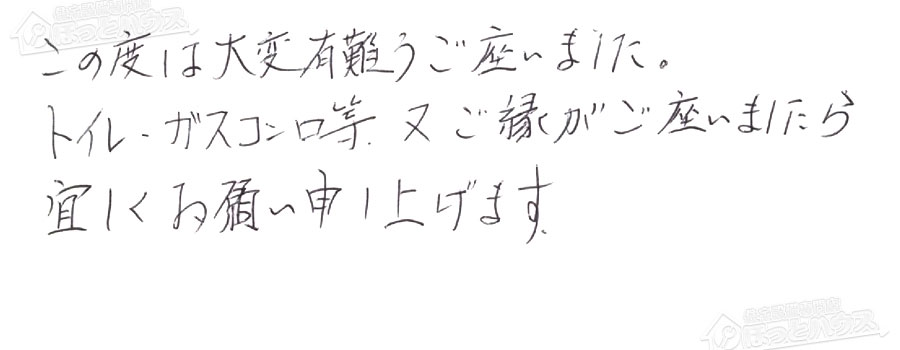 この度は大変有難うご座いました。
トイレ・ガスコンロ等、又ご縁がご座いましたら
宜しくお願い申し上げます。
住宅設備専門店
ほっとハウス
住宅設備専門店
ほっとハウス